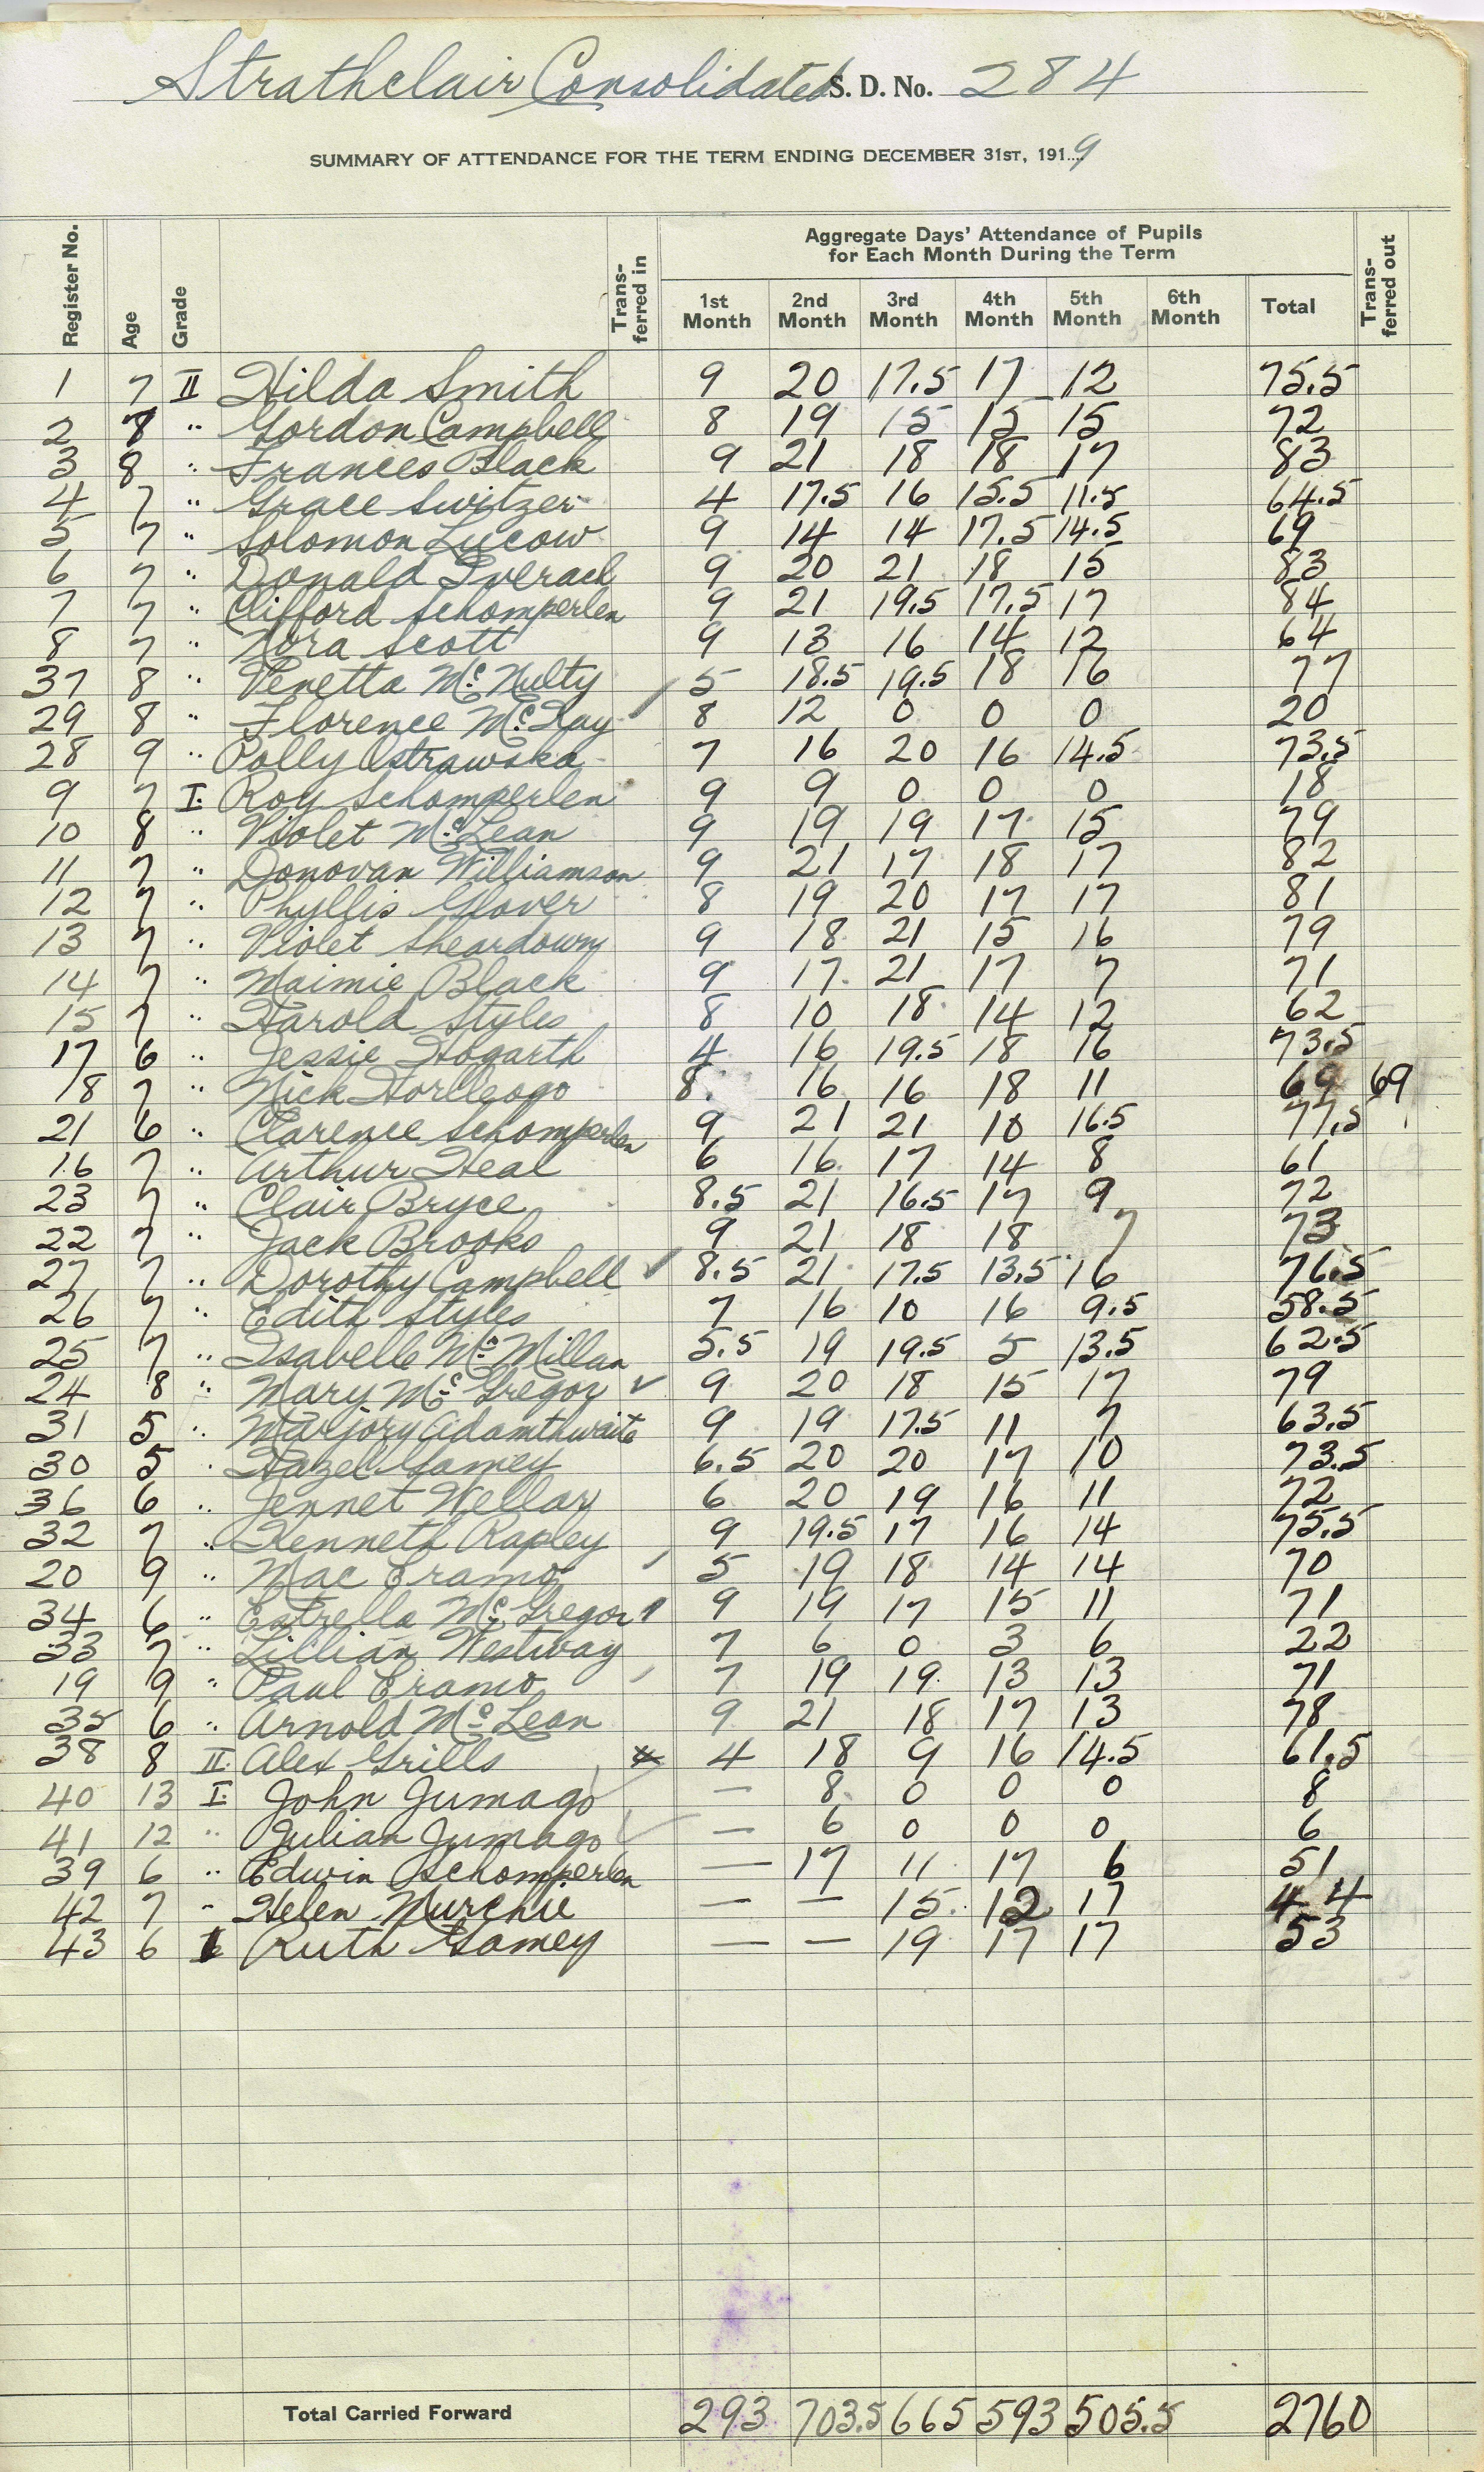 Strathclair Consolidated S. D. No. 284
SUMMARY OF ATTENDANCE FOR THE TERM ENDING DECEMBER 31ST, 1919
Register No. Age Grade Trans-ferred in Aggregate Days' Attendance of Pupils for Each Month During the Term Trans-ferred out
1st Month 2nd Month 3rd Month 4th Month 5th Month 6th Month Total
1 7 II Hilda Smith 9 20 17.5 17 12 75.5
2 8 " Gordon Campbell 8 19 15 15 15 72
3 8 " Frances Black 9 21 18 18 17 83
4 7 " Grace Switzer 4 17.5 16 15.5 11.5 64.5
5 7 " Solomon Lucow 9 14 14 17.5 14.5 69
6 7 " Donald Iverach 9 20 21 18 15 83
7 7 " Clifford Schomperlen 9 21 19.5 17.5 17 84
8 7 " Nora Scott 9 13 16 14 12 64
37 8 " Venetta McNulty 5 18.5 19.5 18 16 77
29 8 " Florence McKay 8 12 0 0 0 20
28 9 " Polly Ostrawska 7 16 20 16 14.5 73.5
9 7 I Roy Schomperlen 9 9 0 0 0 18
10 8 " Violet McLean 9 19 19 17 15 79
11 7 " Donovan Williamson 9 21 17 18 17 82
12 7 " Phyllis Glover 8 19 20 17 17 81
13 7 " Violet Sheardown 9 18 21 15 16 79
14 7 " Maimie Black 9 17 21 17 7 71
15 7 " Harold Styles 8 10 18 14 12 62
17 6 " Jessie Hogarth 4 16 19.5 18 16 73.5
18 7 " Nick 8 16 16 18 11 69 69
21 6 " Clarence Schomperlen 9 21 21 10 16.5 77.5
16 7 " Arthur Heal 6 16 17 14 8 61
23 7 " Clair Bryce 8.5 21 16.5 17 9 72
22 7 " Jack Brooks 9 21 18 18 7 73
27 7 " Dorothy Campbell ✓ 8.5 21 17.5 13.5 16 76.5
26 7 " Edith Styles 7 16 10 16 9.5 58.5
25 7 " Isabelle McMillan 5.5 19 19.5 5 13.5 62.5
24 8 " Mary McGregor ✓ 9 20 18 15 17 79
31 5 " Marjory Adamthwaite 9 19 17.5 11 7 63.5
30 5 " Hazel Gamey 6.5 20 20 17 10 73.5
36 6 " Jennet Wellar 6 20 19 16 11 72
32 7 " Kenneth Rapley 9 19.5 17 16 14 75.5
20 9 " Mac Eramo 5 19 18 14 14 70
34 6 " Estrella McGregor 9 19 17 15 11 71
33 7 " Lillian Westway 7 6 0 3 6 22
19 9 " Paul Eramo 7 19 19 13 13 71
35 6 " Arnold McLean 9 21 18 17 13 78
38 8 II Alex Grills 4 18 9 16 14.5 61.5
40 13 I John Jumago — 8 0 0 0 8
41 12 " Julian Jumago — 6 0 0 0 6
39 6 " Edwin Schomperlen — 17 11 17 6 51
42 7 " Helen Murchie — — 15 12 17 44
43 6 I Ruth Gamey — — 19 17 17 53
Total Carried Forward 293 703.5 665 593 505.5 2760